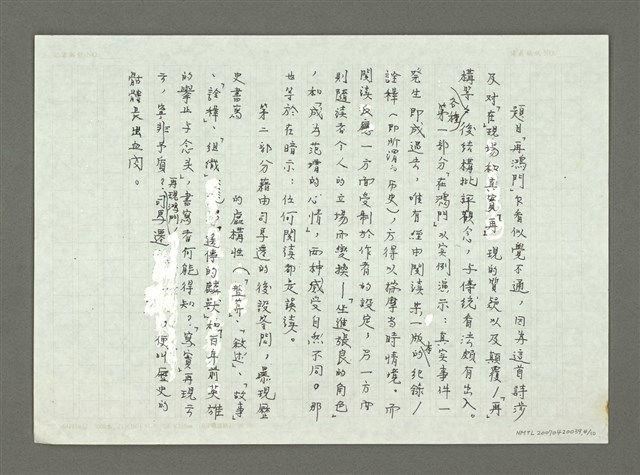 題目「再鴻門」乍看似覺不通，因為這首詩涉
及对「在」現場和「真實」「再」現的質疑以及顛覆／「再」
構等各種後結構批評觀念，与傳統看法頗有出入。
第一部分「在鴻門」以實例演示：真實事件一
發生即成過去，唯有經由閱讀某一版本的紀錄／
詮釋（即所謂歷史），方得以揣摩当時情境。而
閱讀反應一方面受制於作者的設定，另一方面
則隨讀者个人的立場而變換——「坐進張良的角色」
，和「成為范增的心情」，兩种感受自然不同。那
也等於在暗示：任何閱讀都是誤讀。
第二部分藉由司馬遷的後設答問，暴現歷
史書寫的虛構性（「」、「敘述」、「故事」
、「詮釋、組織」），「遠傳的」和「百年前英雄
的舉止与念头」，書寫者何能得知？「寫實」再現云
云，寧非矛盾？司馬遷「再現鴻門」，便叫歷史的
骷髏長出血肉。
NMTL 20070420039